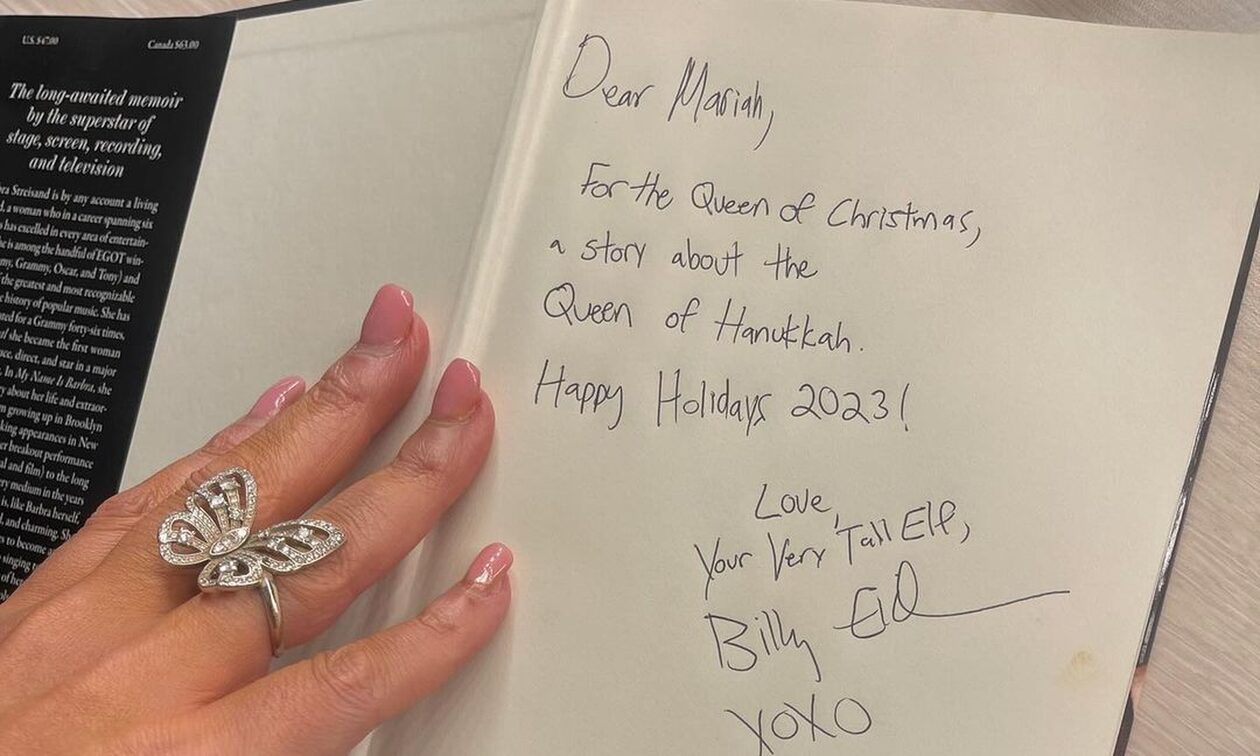 U.S. $47.00
Canada $63.00
The long-awaited memoir
by the superstar of
stage, screen, recording,
and television
Streisand is by any account a living
a woman who in a career spanning six
has excelled in every area of entertain-
is among the handful of EGOT win-
Grammy, Oscar, and Tony) and
the greatest and most recognizable
history of popular music. She has
for a Grammy forty-six times,
she became the first woman
direct, and star in a major
In My Name Is Barbra, she
about her life and extraor-
growing up in Brooklyn
appearances in New
breakout performance
and film) to the long
medium in the years
is, like Barbra herself,
and charming.
to become
singing
of
Dear Mariah,
For the Queen of Christmas,
a story about the
Queen of Hanukkah.
Happy Holidays 2023!
Love,
Your Very Tall Elf,
Billy
XOXO